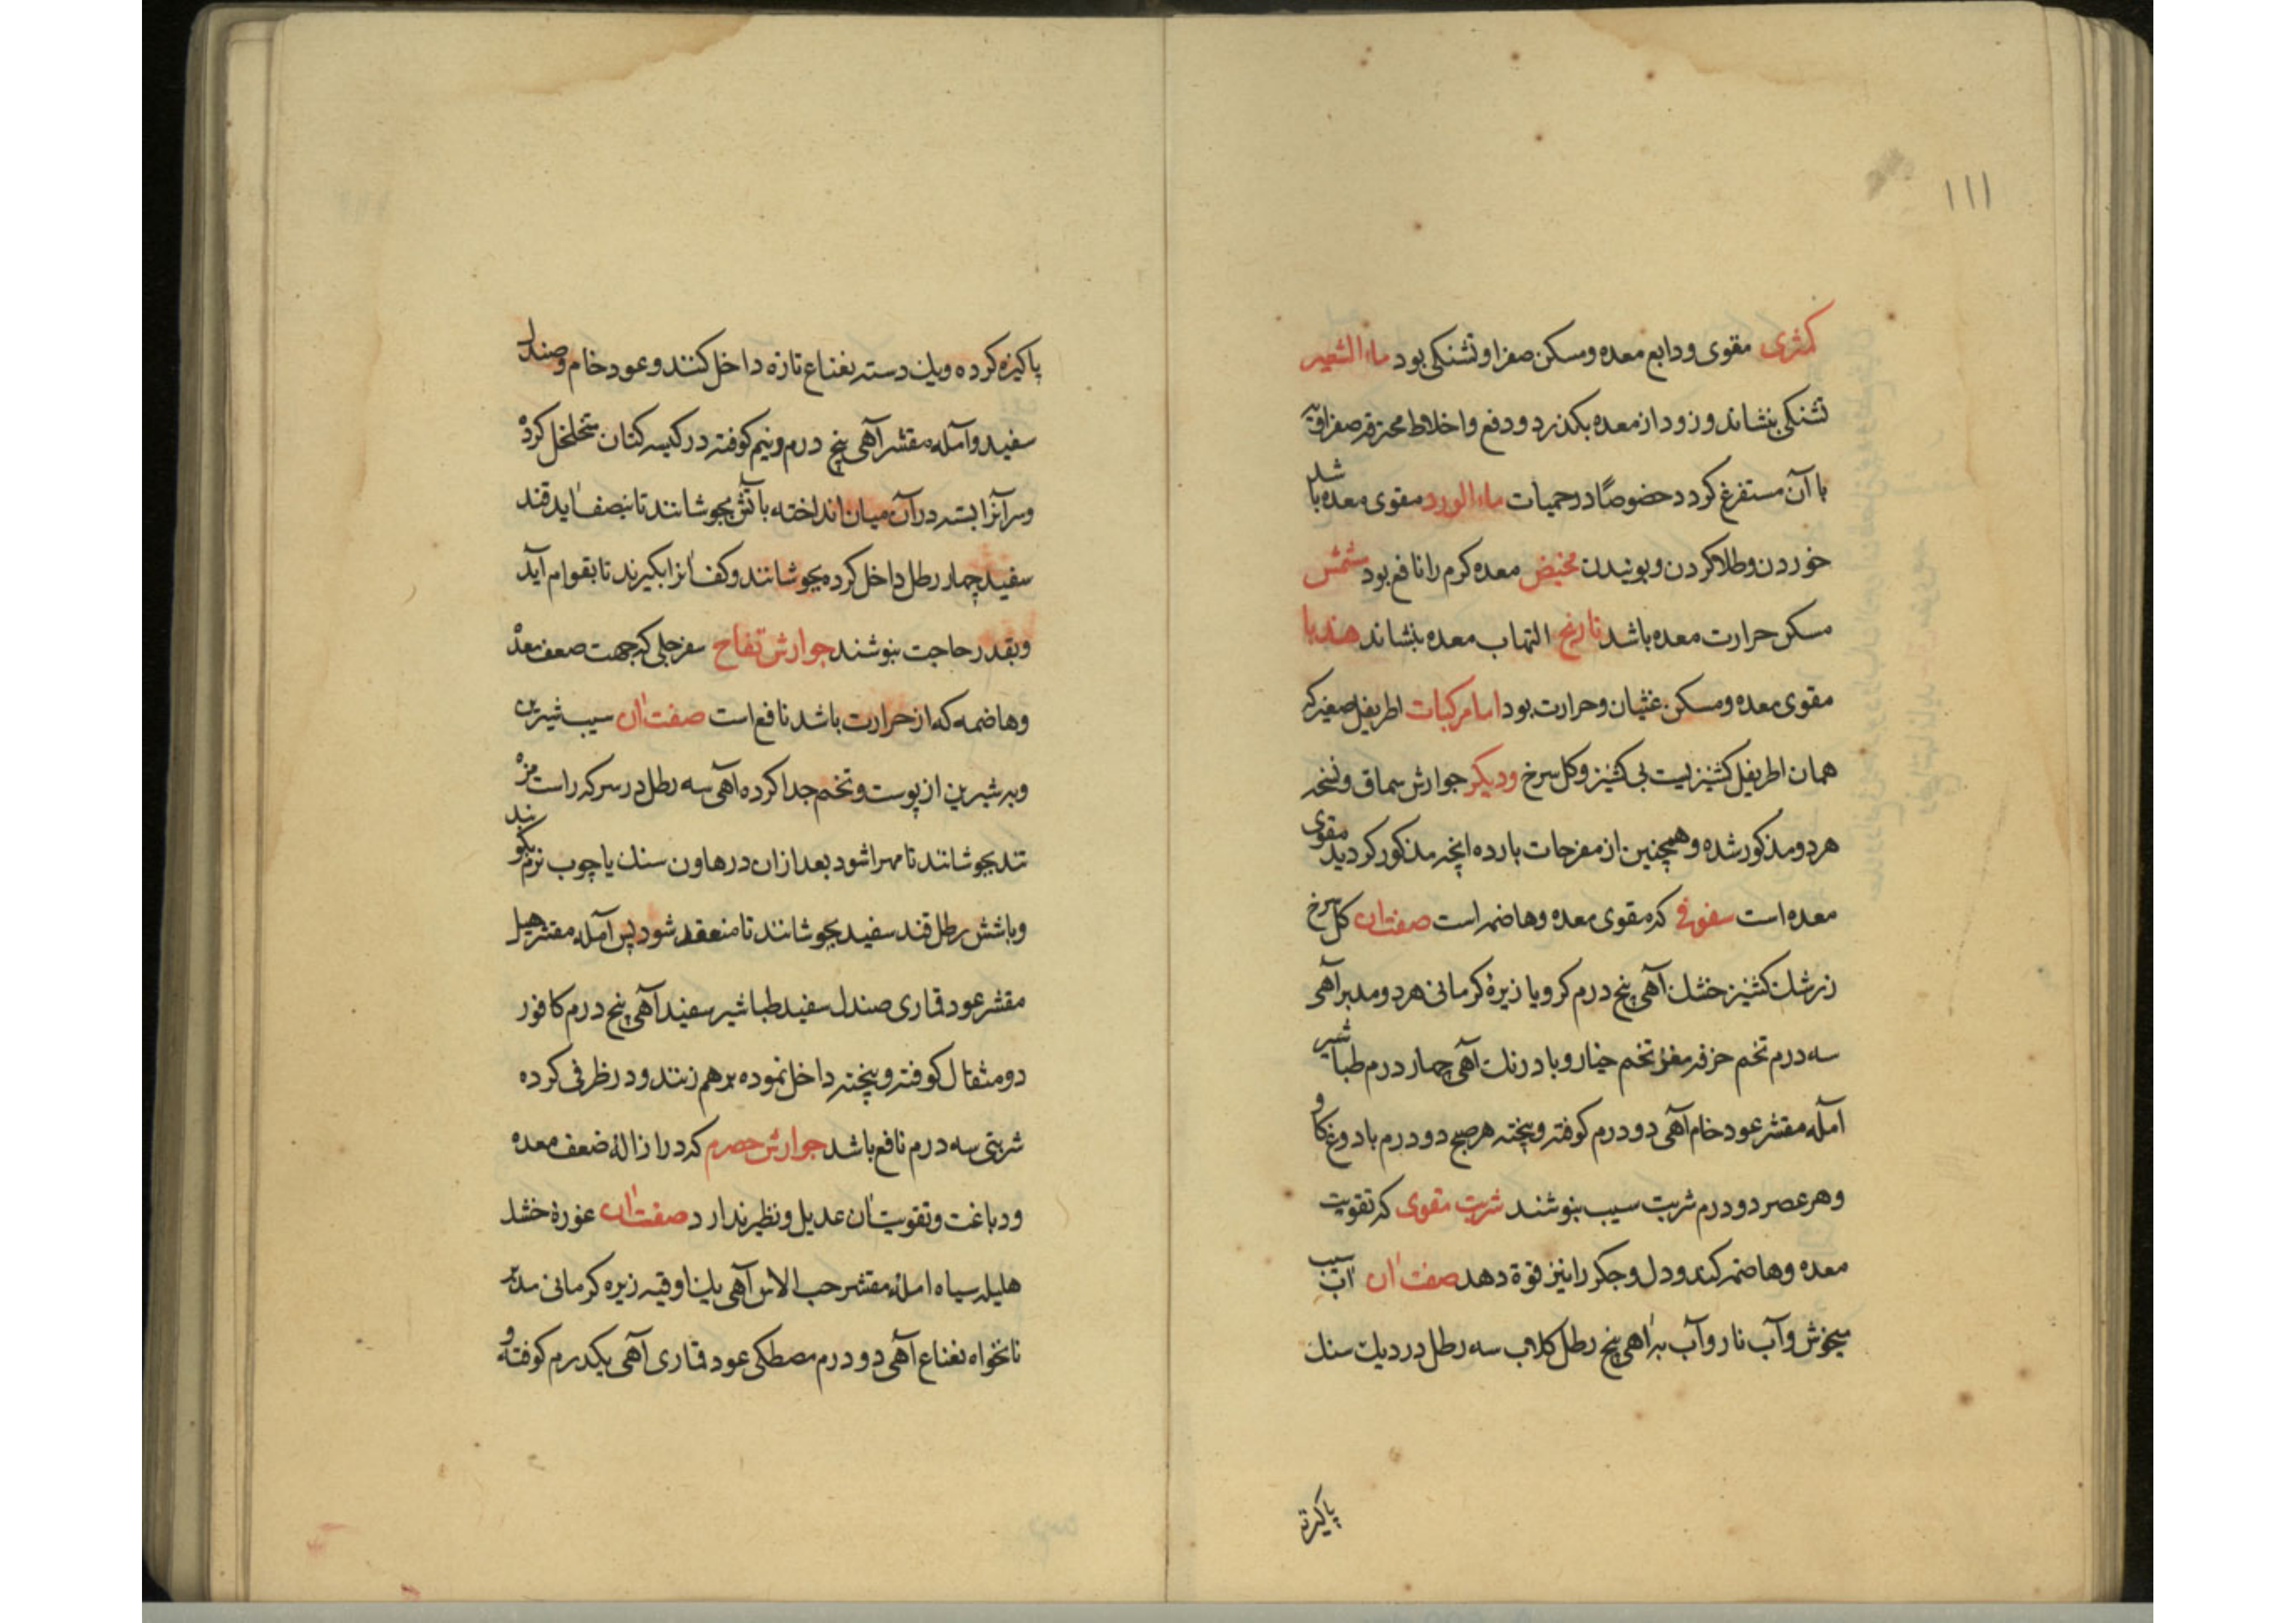 ۱۱۱
کمثری مقوی و دابع معده و مسکن صفرا و تشنکی بود ماء الشعیر
تشنکی بنشاند و زود از معده بکذرد و دفع و اخلاط محترقه صفراویه
با آن مستفرغ کردد خصوصًا در حمیات ماء الورد مقوی معده باشد
خوردن و طلا کردن و بوئیدن مخیض معده کرم را نافع بود مشمش
مسکن حرارت معده باشد نارنج التهاب معده بنشاند هندبا
مقوی معده و مسکن غثیان و حرارت بود اما مرکبات اطریفل صغیر که
همان اطریفل کشنیزیست بی کشنیز و کل سرخ و دیکر جوارش سماق و نسخه
هر دو مذکور شده و همچنین از مفرحات بارده انچه مذکور کردید مقوی
معده است سفوفی که مقوی معده و هاضمه است صفت آن کل سرخ
زرشک کشنیز خشک آهی پنج درم کرویا زیرهٔ کرمانی هر دو مدبر آهی
سه درم تخم خرفه مغز تخم خیار و بادرنک آهی چهار درم طباشیر
آمله مقشر عود خام آهی دو درم کوفته و بیخته هر صبح دو درم با دوغ کاو
و هر عصر دو درم شربت سیب بنوشند شربت مقوی که تقویت
معده و هاضمه کند و دل و جکر را نیز قوة دهد صفت آن آب سیب
میخوش و آب نار و آب به آهی پنج رطل کلاب سه رطل در دیک سنک
پاکیزه
پاکیزه کرده و یک دسته نعناع تازه داخل کنند و عود خام و صندل
سفید و آمله مقشر آهی پنج درم و نیم کوفته در کیسه کتان متخلخل کرده
و سر آنرا بسته در آن میان انداخته باتش بجوشانند تا بنصف آید قند
سفید چهار رطل داخل کرده بجوشانند و کف آنرا بکیرند تا بقوام آید
و بقدر حاجت بنوشند جوارش تفاح سفرجلی که جهت ضعف معده
و هاضمه که از حرارت باشد نافع است صفت آن سیب شیرین
و به شیرین از پوست و تخم جدا کرده آهی سه رطل در سرکه راست مزه
تند بجوشانند تا مهرا شود بعد از ان در هاون سنک یا چوب نرم بکوبند
و با شش رطل قند سفید بجوشانند تا منعقد شود پس آمله مقشر هیل
مقشر عود قماری صندل سفید طباشیر سفید آهی پنج درم کافور
دو مثقال کوفته و بیخته داخل نموده بر هم زنند و در ظرفی کرده
شربتی سه درم نافع باشد جوارش حصرم که در ازالهٔ ضعف معده
و دباغت و تقویت آن عدیل و نظیر ندارد صفت آن غورهٔ خشک
هلیله سیاه امله مقشر حب الاس آهی یک اوقیه زیره کرمانی مدبر
نانخواه نعناع آهی دو درم مصطکی عود قماری آهی یکدرم کوفته و